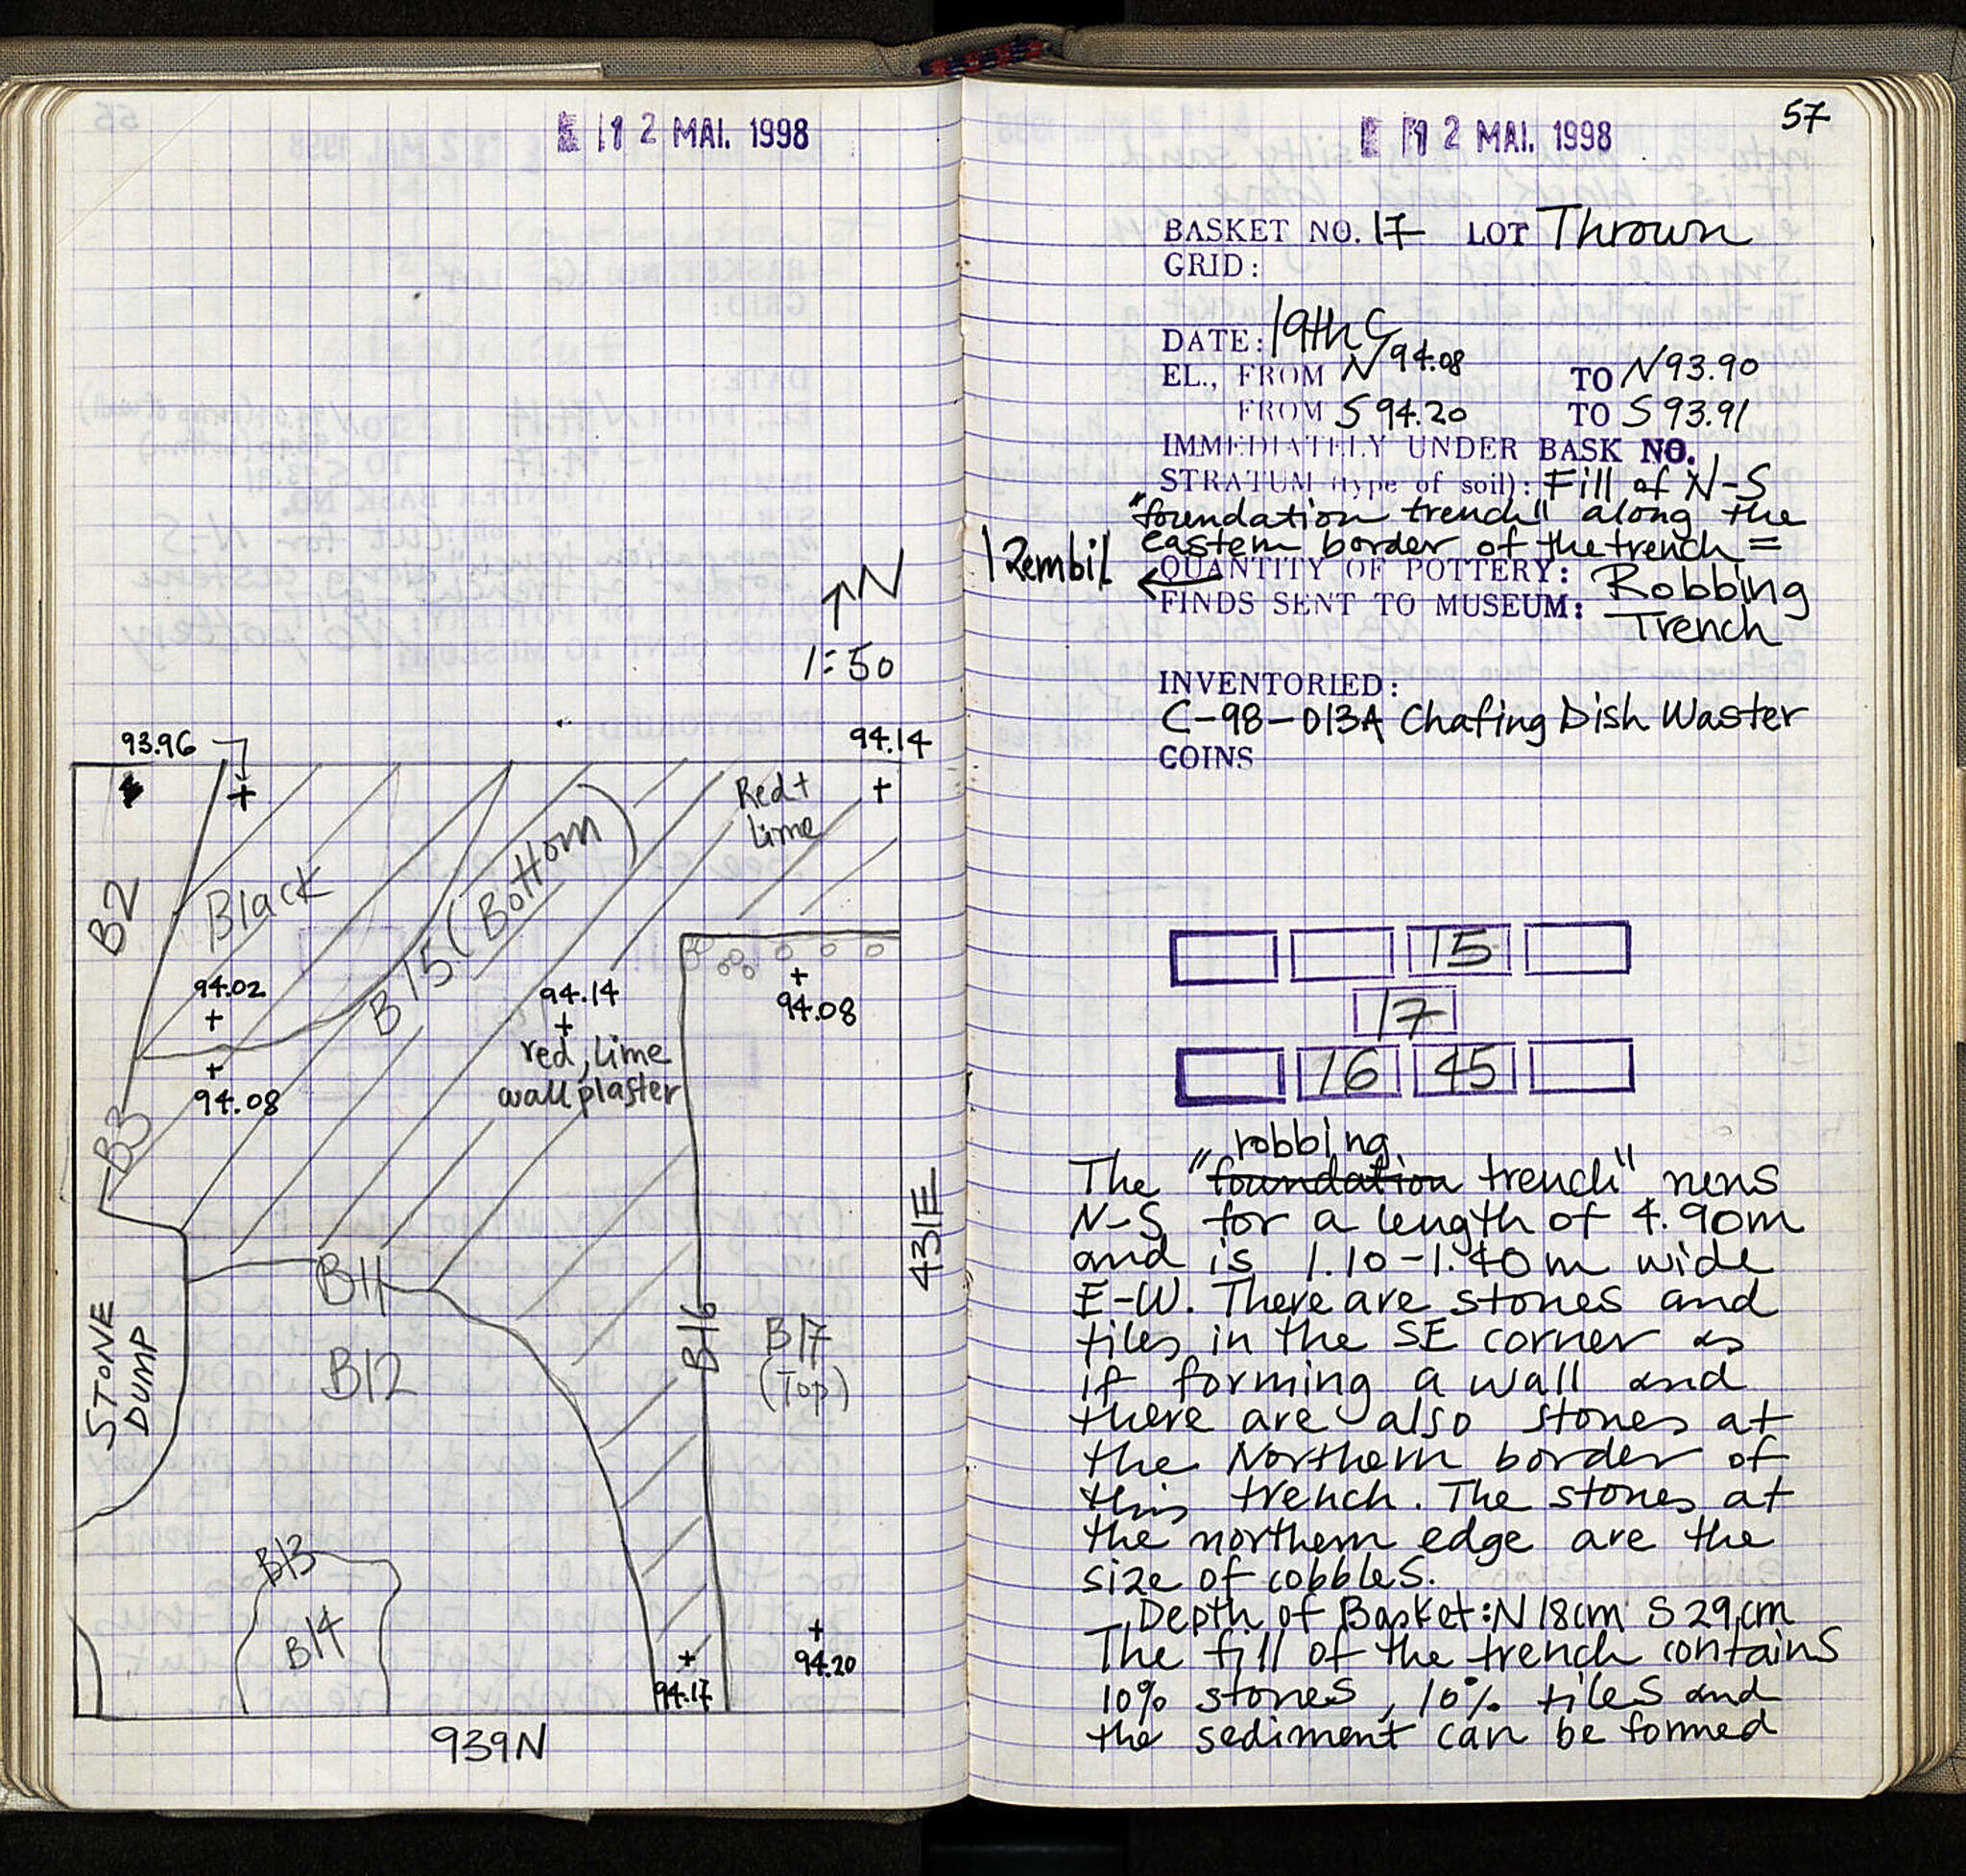 12 MAI. 1998
N
1:50
93.96
94.14
Red +
lime
B2
Black
B15 (Bottom)
94.02
94.14
94.08
red, lime
wall plaster
94.08
B3
431E
B11
B16
B17
(Top)
STONE
DUMP
B12
B13
B14
94.20
94.17
939N
12 MAI. 1998
57
BASKET NO. 17 LOT Thrown
GRID:
DATE: 19th C
EL., FROM N 94.08 TO N 93.90
FROM S 94.20 TO S 93.91
IMMEDIATELY UNDER BASK NO.
STRATUM (type of soil): Fill of N-S
"foundation trench" along the
eastern border of the trench =
1 Zembil
QUANTITY OF POTTERY: Robbing
FINDS SENT TO MUSEUM: Trench
INVENTORIED:
C-98-013A Chafing Dish Waster
COINS
15
17
16 45
robbing
The "foundation trench" runs
N-S for a length of 4.90m
and is 1.10-1.40m wide
E-W. There are stones and
tiles in the SE corner as
if forming a wall and
there are also stones at
the Northern border of
this trench. The stones at
the northern edge are the
size of cobbles.
Depth of Basket: N 18cm S 29cm
The fill of the trench contains
10% stones, 10% tiles and
the sediment can be formed